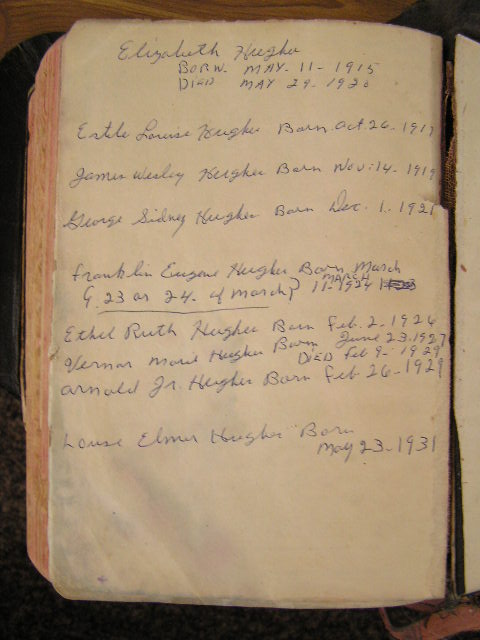 Elizabeth Hughe
BORN. MAY. 11 - 1915
DIED MAY 29 - 1920
Estle Louise Hughes Born Oct. 26 - 1917
James Wesley Hughes Born Nov. 14 - 1919
George Sidney Hughes Born Dec. 1 - 1921
Franklin Eugene Hughes Born March
MARCH
(23 or 24 of March) 11 - 1924
Ethel Ruth Hughes Born Feb. 2 - 1926
Vernon Marie Hughes Born June 23. 1927
DIED Feb 9 - 1929
Arnold Jr. Hughes Born Feb 26 - 1929
Louise Elmer Hughes Born
May 23 - 1931